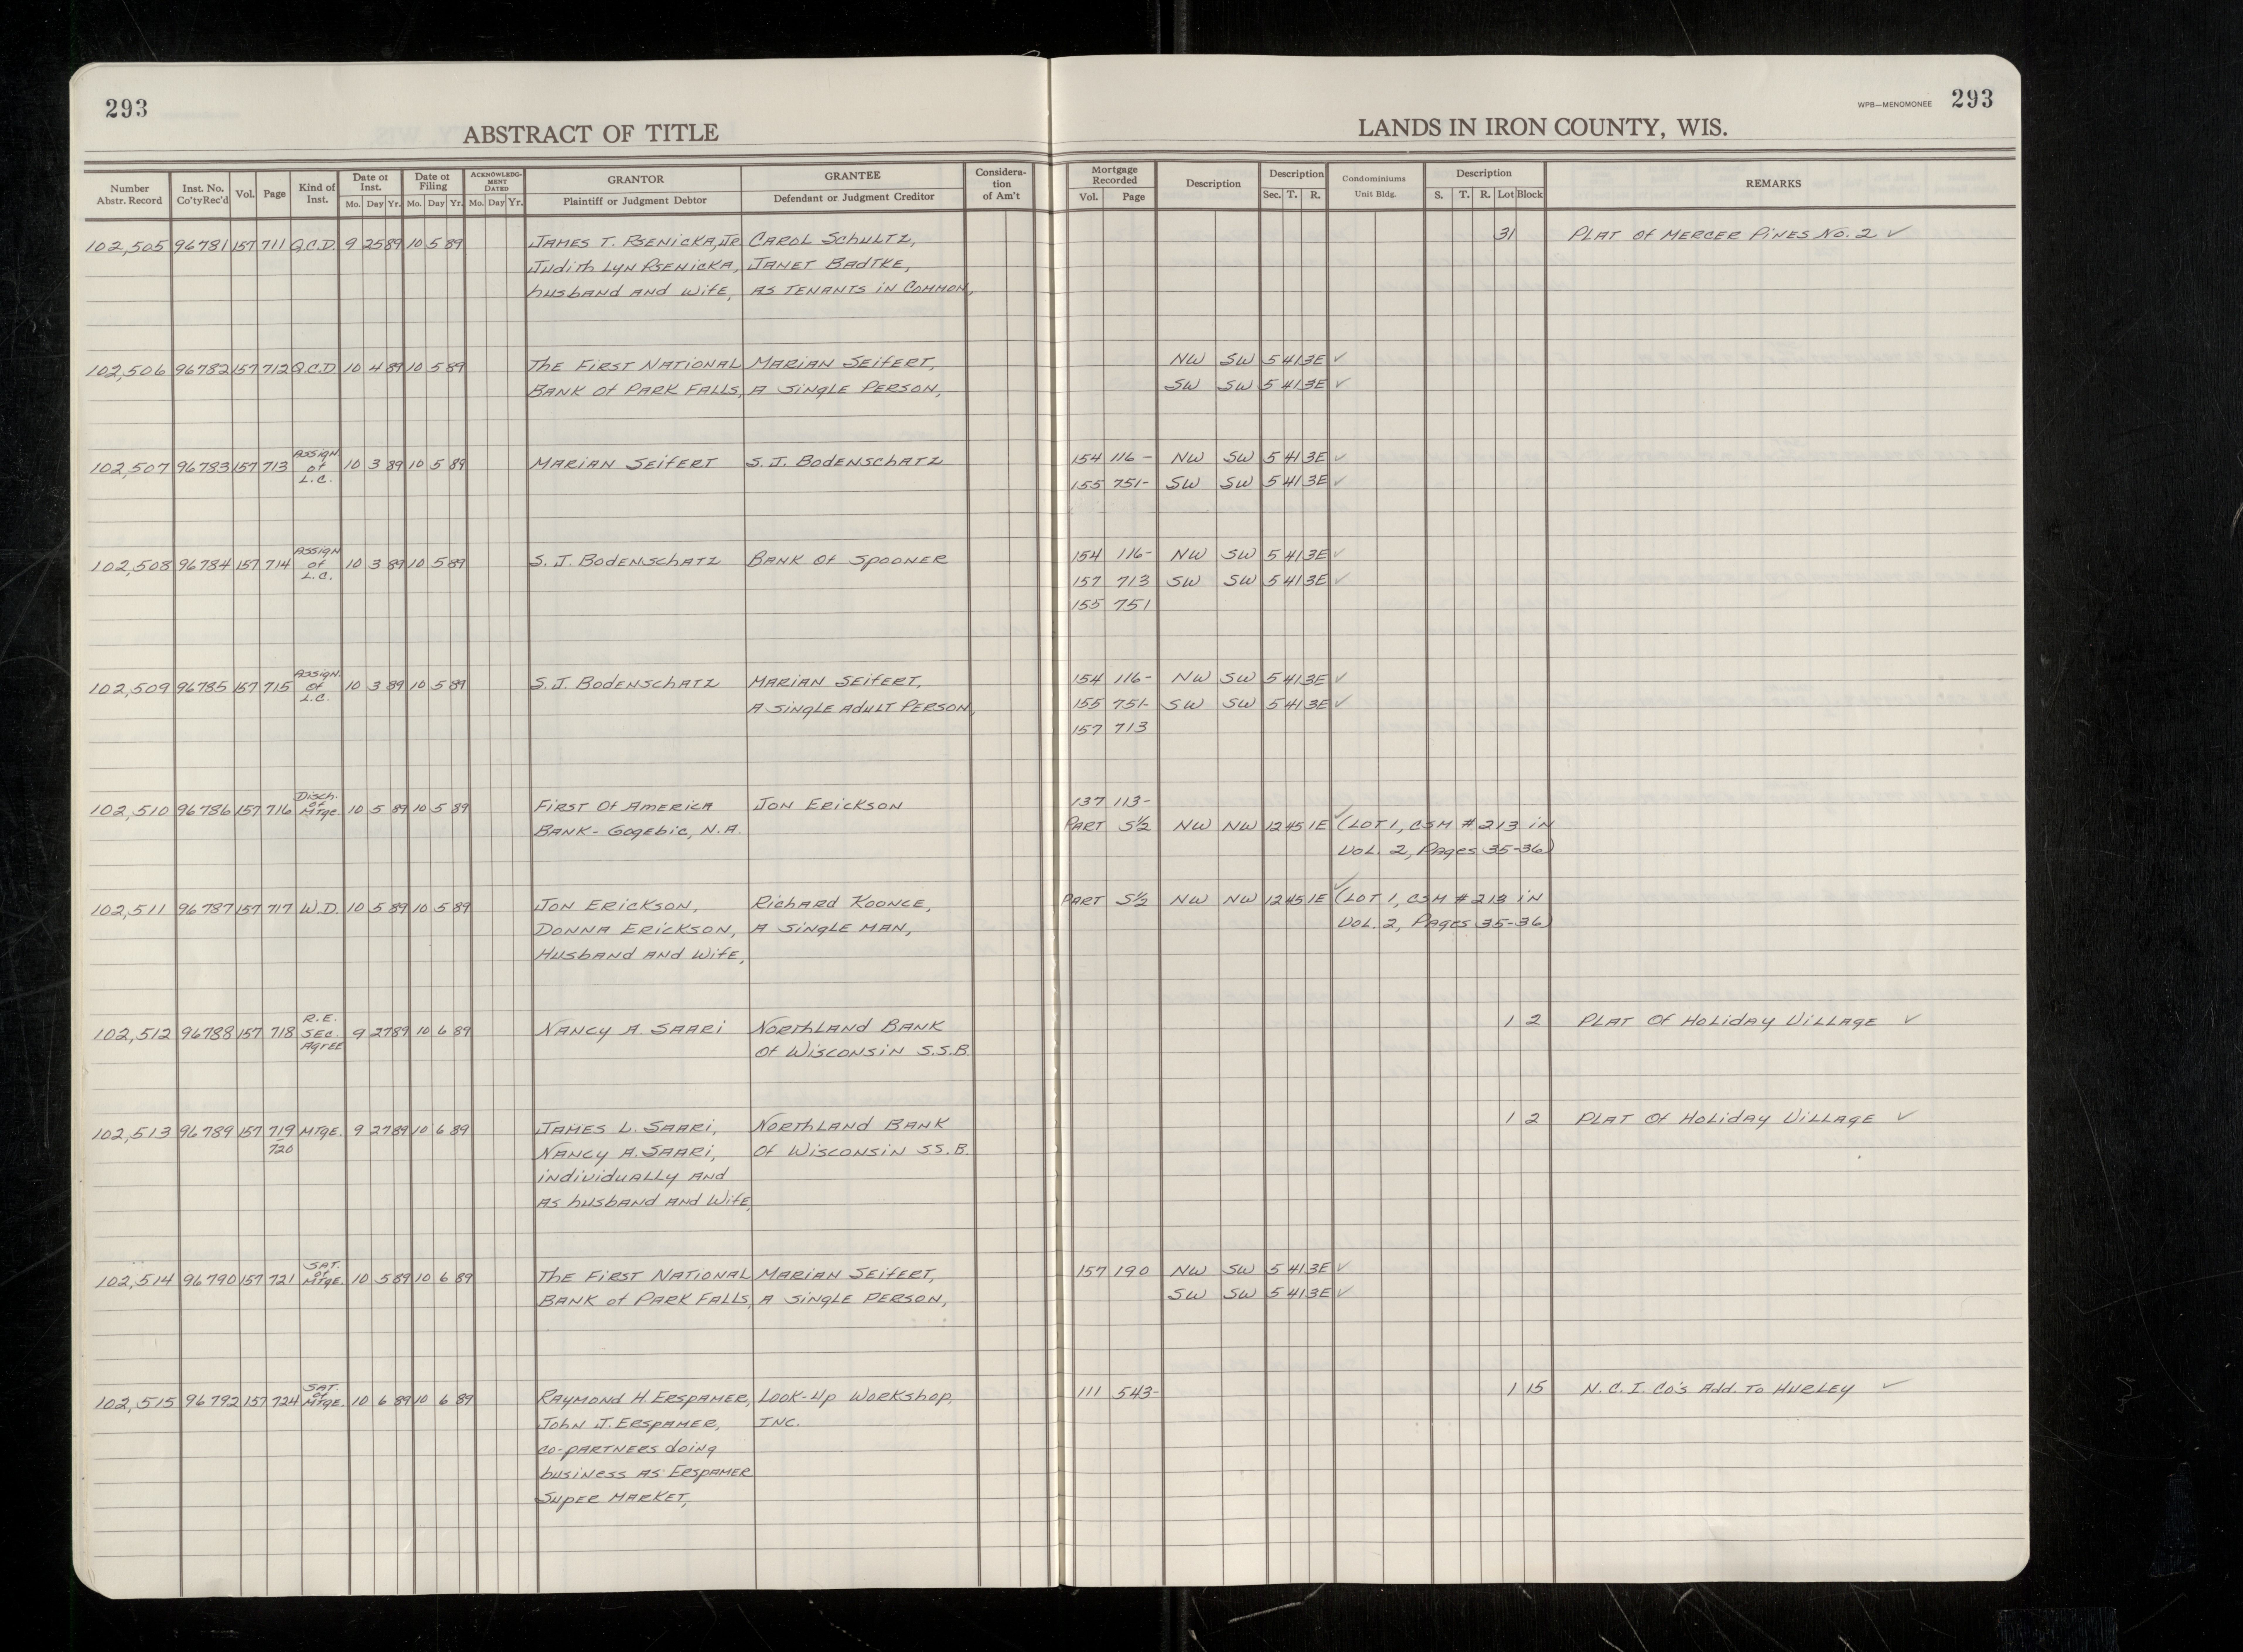 293
ABSTRACT OF TITLE
LANDS IN IRON COUNTY, WIS.
WPB—MENOMONEE 293
Number Abstr. Record
Inst. No. Co'ty Rec'd
Vol.
Page
Kind of Inst.
Date of Inst. Mo. Day Yr.
Date of Filing Mo. Day Yr.
ACKNOWLEDGMENT DATED Mo. Day Yr.
GRANTOR Plaintiff or Judgment Debtor
GRANTEE Defendant or Judgment Creditor
Consideration of Am't
Mortgage Recorded Vol. Page
Description
Description Sec. T. R.
Condominiums Unit Bldg.
Description S. T. R. Lot Block
REMARKS
102,505 96781 157 711 Q.C.D. 9 25 89 10 5 89 James T. Psenicka, Jr Carol Schultz, 31 Plat of Mercer Pines No. 2 ✓
Judith Lyn Psenicka, Janet Badtke,
husband and wife, as tenants in common,
102,506 96782 157 712 Q.C.D 10 4 89 10 5 89 The First National Marian Seifert, NW SW 5 41 3E ✓
Bank of Park Falls, a single person, SW SW 5 41 3E ✓
102,507 96783 157 713 Assign of L.C. 10 3 89 10 5 89 Marian Seifert S.J. Bodenschatz 154 116- NW SW 5 41 3E ✓
155 751- SW SW 5 41 3E ✓
102,508 96784 157 714 Assign of L.C. 10 3 89 10 5 89 S.J. Bodenschatz Bank of Spooner 154 116- NW SW 5 41 3E ✓
157 713 SW SW 5 41 3E ✓
155 751
102,509 96785 157 715 Assign. of L.C. 10 3 89 10 5 89 S.J. Bodenschatz Marian Seifert, 154 116- NW SW 5 41 3E ✓
a single adult person, 155 751- SW SW 5 41 3E ✓
157 713
102,510 96786 157 716 Disch. of Mtge. 10 5 89 10 5 89 First of America Jon Erickson 137 113-
Bank-Gogebic, N.A. Part S½ NW NW 12 45 1E ✓ (Lot 1, CSM #213 in
Vol. 2, Pages 35-36)
102,511 96787 157 717 W.D. 10 5 89 10 5 89 Jon Erickson, Richard Koonce, Part S½ NW NW 12 45 1E ✓ (Lot 1, CSM #213 in
Donna Erickson, a single man, Vol. 2, Pages 35-36)
Husband and wife,
102,512 96788 157 718 R.E. Sec. Agree 9 27 89 10 6 89 Nancy A. Saari Northland Bank 1 2 Plat of Holiday Village ✓
of Wisconsin S.S.B.
102,513 96789 157 719 Mtge. 9 27 89 10 6 89 James L. Saari, Northland Bank 1 2 Plat of Holiday Village ✓
720 Nancy A. Saari, of Wisconsin S.S.B.
individually and
as husband and wife,
102,514 96790 157 721 Sat. of Mtge. 10 5 89 10 6 89 The First National Marian Seifert, 157 190 NW SW 5 41 3E ✓
Bank of Park Falls, a single person, SW SW 5 41 3E ✓
102,515 96792 157 724 Sat. of Mtge. 10 6 89 10 6 89 Raymond H. Erspamer, Look-Up Workshop, 111 543- 1 15 N.C.I. Co's Add. to Hurley ✓
John J. Erspamer, Inc.
co-partners doing
business as Erspamer
Super Market,